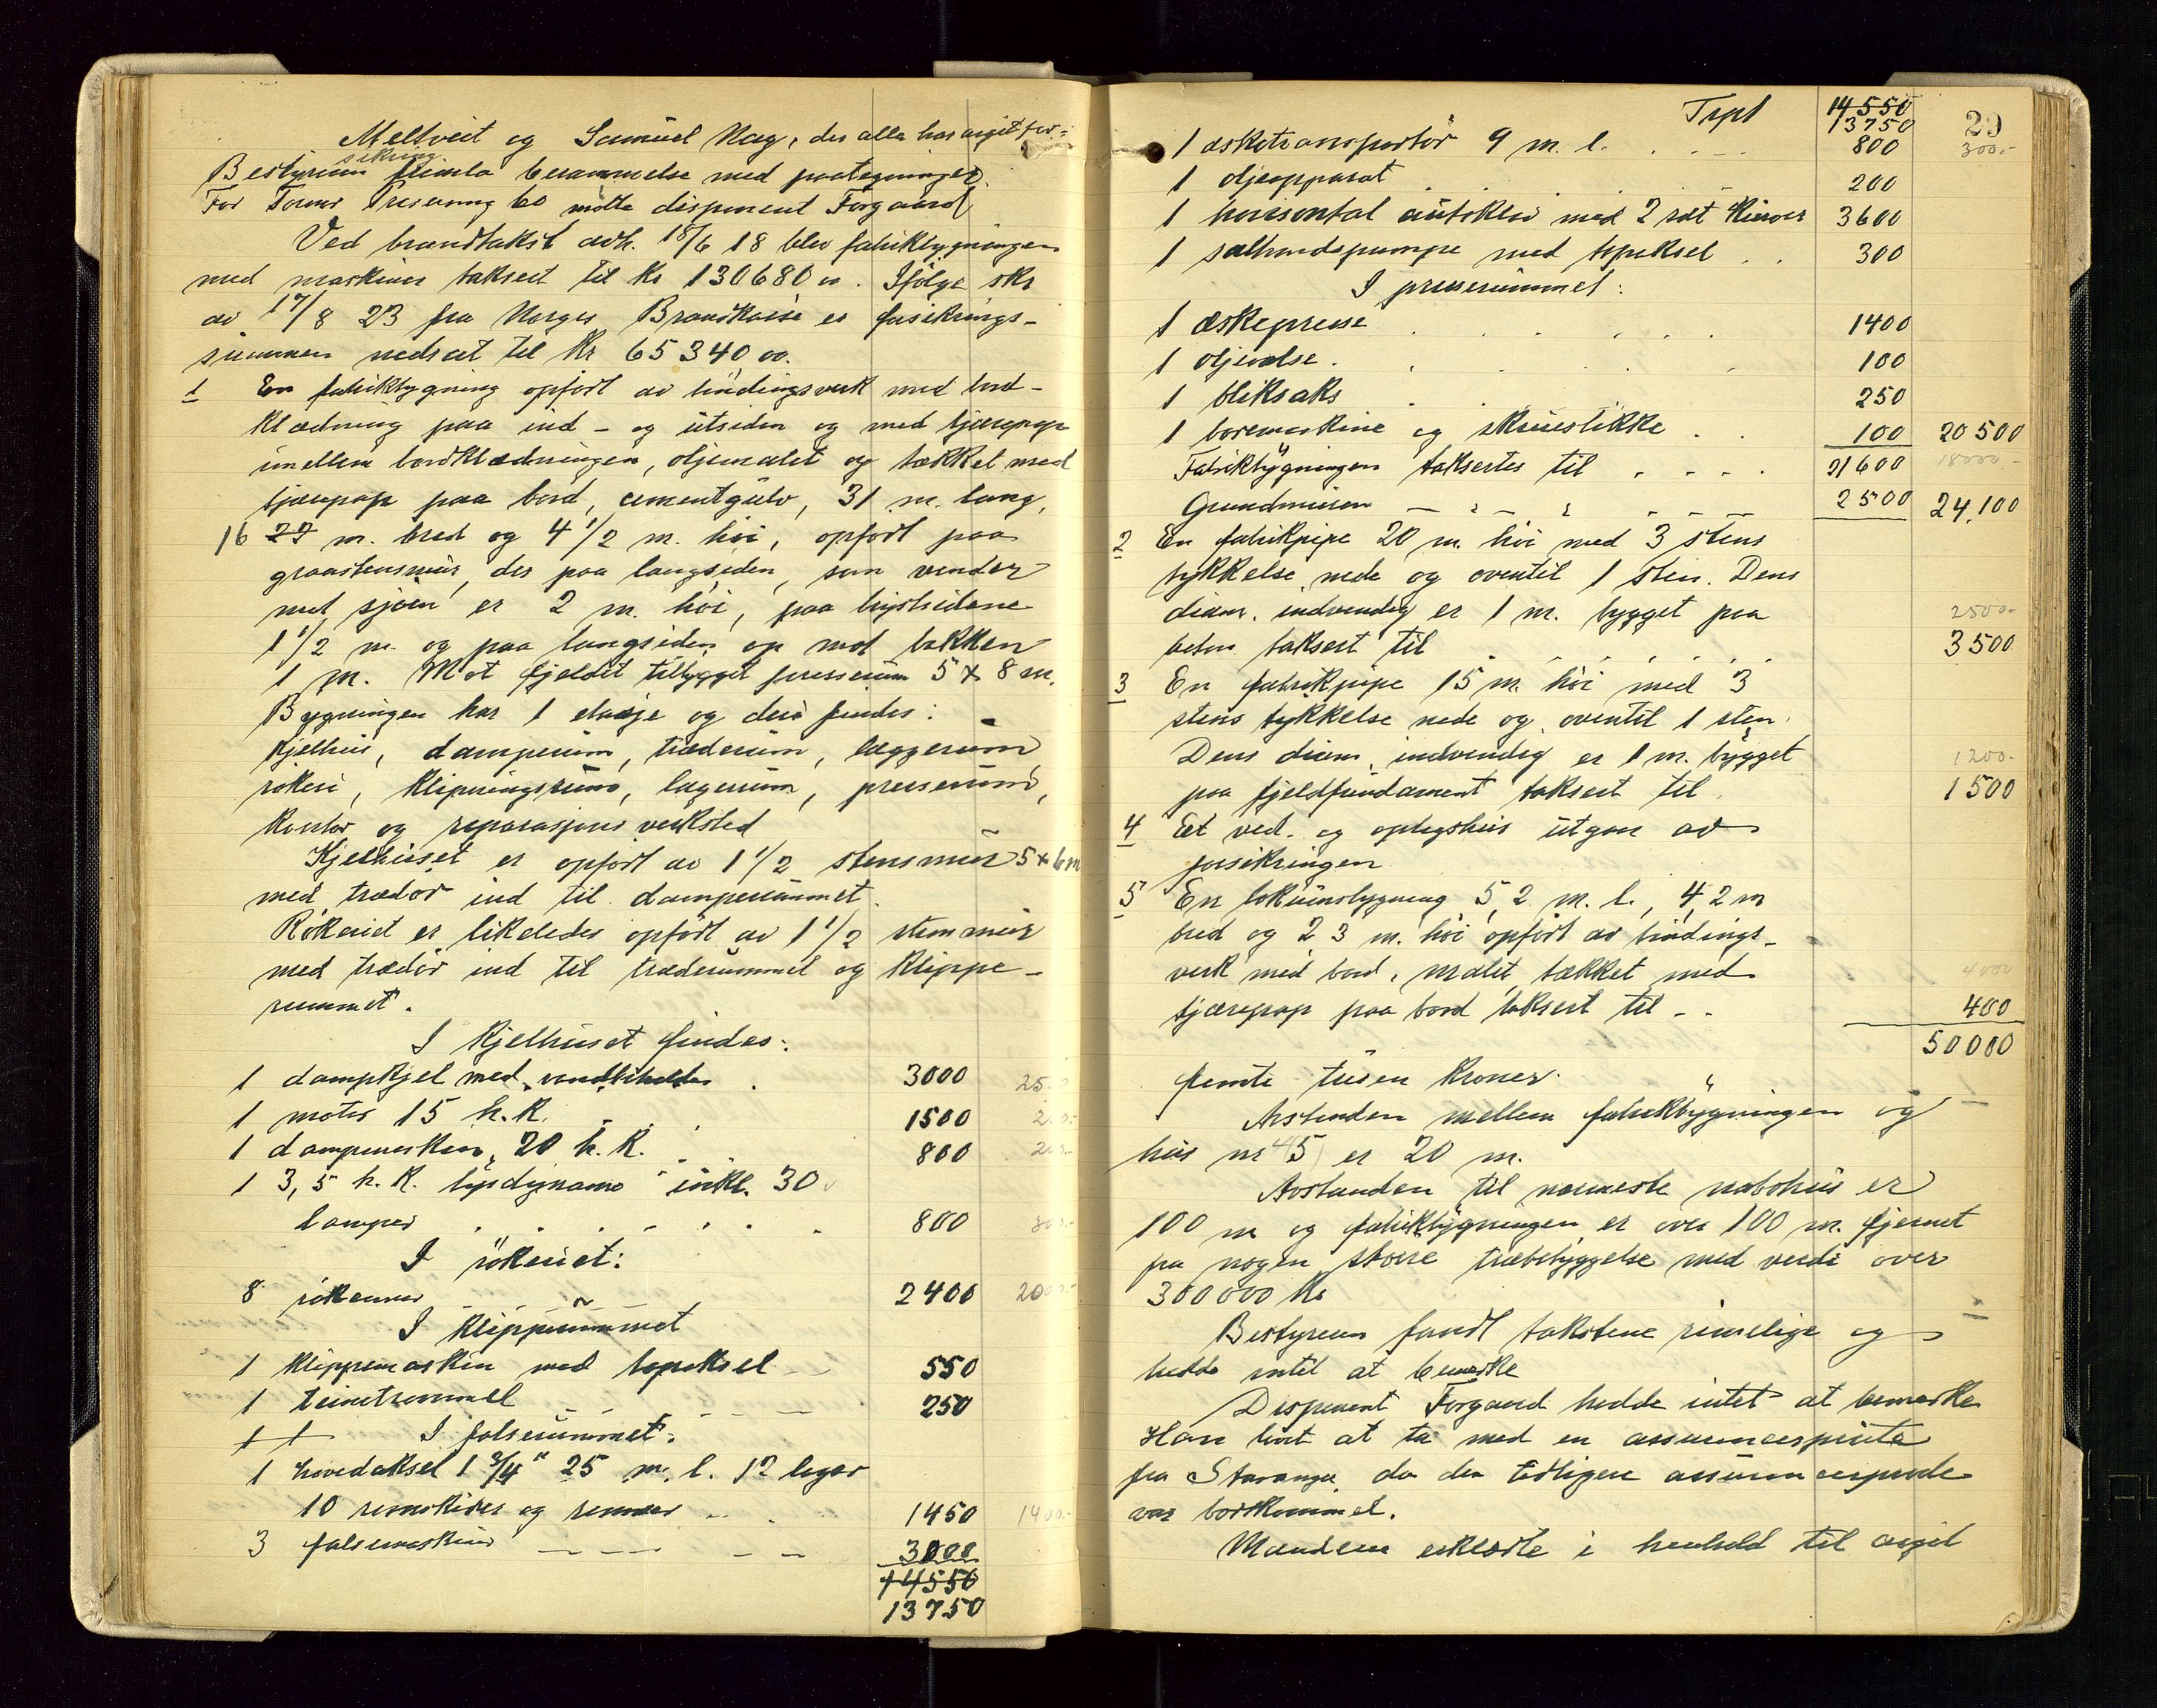 Meltveit og Samuel Hag, der alle har avgit for-
sikring
Bestyrerens fremla berammelse med paategninger.
For Tornes Preserving Co møtte disponent Forgaard
Ved brandtakst avh. 18/6 18 blev fabrikbygningen
med maskiner taksert til Kr 130680 oo. Ifölge skr
av 17/8 23 fra Norges Brandkasse er forsikrings-
summen nedsat til Kr 65340 oo.
1 En fabrikbygning opfört av bindingsverk med bord-
klædning paa ind- og utsiden og med tjærepap
imellem bordklædningen, oljemalet og tækket med
tjærepap paa bord, cementgulv, 31 m. lang,
16 27 m. bred og 4 1/2 m. höi, opfört paa
graastensmur, der paa langsiden, som vender
mot sjöen er 2 m. höi, paa kortsidene
1 1/2 m. og paa langsiden op mot bakken
1 m. Mot fjeldet tilbygget presserum 5 x 8 m.
Bygningen har 1 etasje og deri findes:
Kjelhus, damperum, træderum, læggerum,
rökeri, klipningsrum, lagerum, presserum,
kontor og reparasjonsverksted
Kjelhuset er opfört av 1 1/2 stensmur 5 x 6 m
med trædör ind til damperummet.
Rökeriet er likeledes opfört av 1 1/2 stensmur
med trædör ind til træderummet og klippe-
rummet.
I Kjelhuset findes:
1 dampkjel med vandbeholder . 3000
1 motor 15 h.K. . . . 1500
1 dampmaskin, 20 h.K. . . 800
1 3,5 h.K. lysdynamo inkl. 30
lamper . . . . . . 800
I rökeriet:
8 rökovner 2400
I klipperummet
1 klippemaskin med topaksel 550
1 teinetrommel 250
1 1 I falserummet:
1 hovedaksel 1 3/4" 25 m. l. 12 lager
10 remskiver og remmer . . 1450
3 falsemaskiner 3000
14550
13750
Trpt 14550
13750
29
1 æsketransportör 9 m. l. . . 800 300.-
1 oljeapparat 200
1 horisontal autoklav med 2 sæt kurver 3600
1 salthandspumpe med topaksel . . 300
I presserummet:
1 æskepresse . . . . . 1400
1 oljevalse . . . 100
1 bliksaks . . . 250
1 boremaskine og skruestikke . . 100 20500
Fabrikbygningen taksertes til . . . . 21600 18000.-
Grundmuren — " — " — — — 2500 24,100
2 En fabrikpipe 20 m. höi med 3 stens
tykkelse nede og oventil 1 sten. Dens
diam. indvendig er 1 m. bygget paa 2500.-
beton taksert til . . . . . 3500
3 En fabrikpipe 15 m. höi med 3
stens tykkelse nede og oventil 1 sten.
Dens diam. indvendig er 1 m. bygget 1200.-
paa fjeldfundament taksert til . 1500
4 Et ved- og oplagshus utgaar av
forsikringen
5 En lokumsbygning 5,2 m. l., 4,2 m
bred og 2,3 m. höi opfört av bindings-
verk med bord, malet, tækket med
tjærepap paa bord taksert til - - 400
50000
femti tusen Kroner.
Avstanden mellem fabrikbygningen og
hus nr 45 er 20 m.
Avstanden til nærmeste nabohus er
100 m og fabrikbygningen er over 100 m. fjernet
fra nogen större træbebyggelse med verdi over
300000 Kr
Bestyreren fandt takstene rimelige og
hadde intet at bemerke
Disponent Forgaard hadde intet at bemerke
Han lovet at ta med en assuranceprotokol
fra Stavanger, da den tidligere
var bortkommet.
Mændene erklærte i henhold til avgit